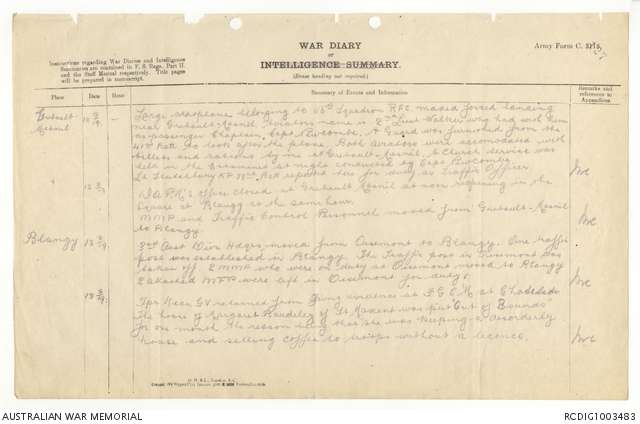 WAR DIARY
or
INTELLIGENCE SUMMARY.
(Erase heading not required.)
Army Form C. 2118.
Instructions regarding War Diaries and Intelligence
Summaries are contained in F. S. Regs., Part II.
and the Staff Manual respectively. Title pages
will be prepared in manuscript.
Place
Date
Hour
Summary of Events and Information
Remarks and
references to
Appendices
Large aeroplane belonging to Squadron RFC maked forced landing
near Grebault-Mesnil. Aviators name is 2nd Lieut Walker who had with him
as passenger Chaplain, Capt Newcombe. A Guard was furnished from the
41st Batt to look after the plane. Both aviators were accomodated with
billets and rations by me at Grebault-Mesnil. A Church service was
held in the at night conducted by Capt Newcombe.
Lt 33rd Batt reported here for duty as Traffic Officer.
D.A.P.M.'s Office closed at Grebault Mesnil at noon reopening in the
Square at Blangy at the same hour.
MMP and Traffic Control Personnel moved from Grebault-Mesnil
to Blangy.
Blangy
3rd Aust Divn Hdqrs moved from Oisemont to Blangy. One traffic
post was established in Blangy. The Traffic post in Oisemont was
taken off. 2 MMP who were on duty at Oisemont moved to Blangy
2 attached MFP were left in Oisemont for duty.
returned from giving evidence at F.G.C.M. at
The house of Margaret of St Maxent was put "Out of Bounds"
for one month the reason being that she was keeping a disorderly
house and selling coffee to troops without a licence.
AUSTRALIAN WAR MEMORIAL
RCDIG1003483